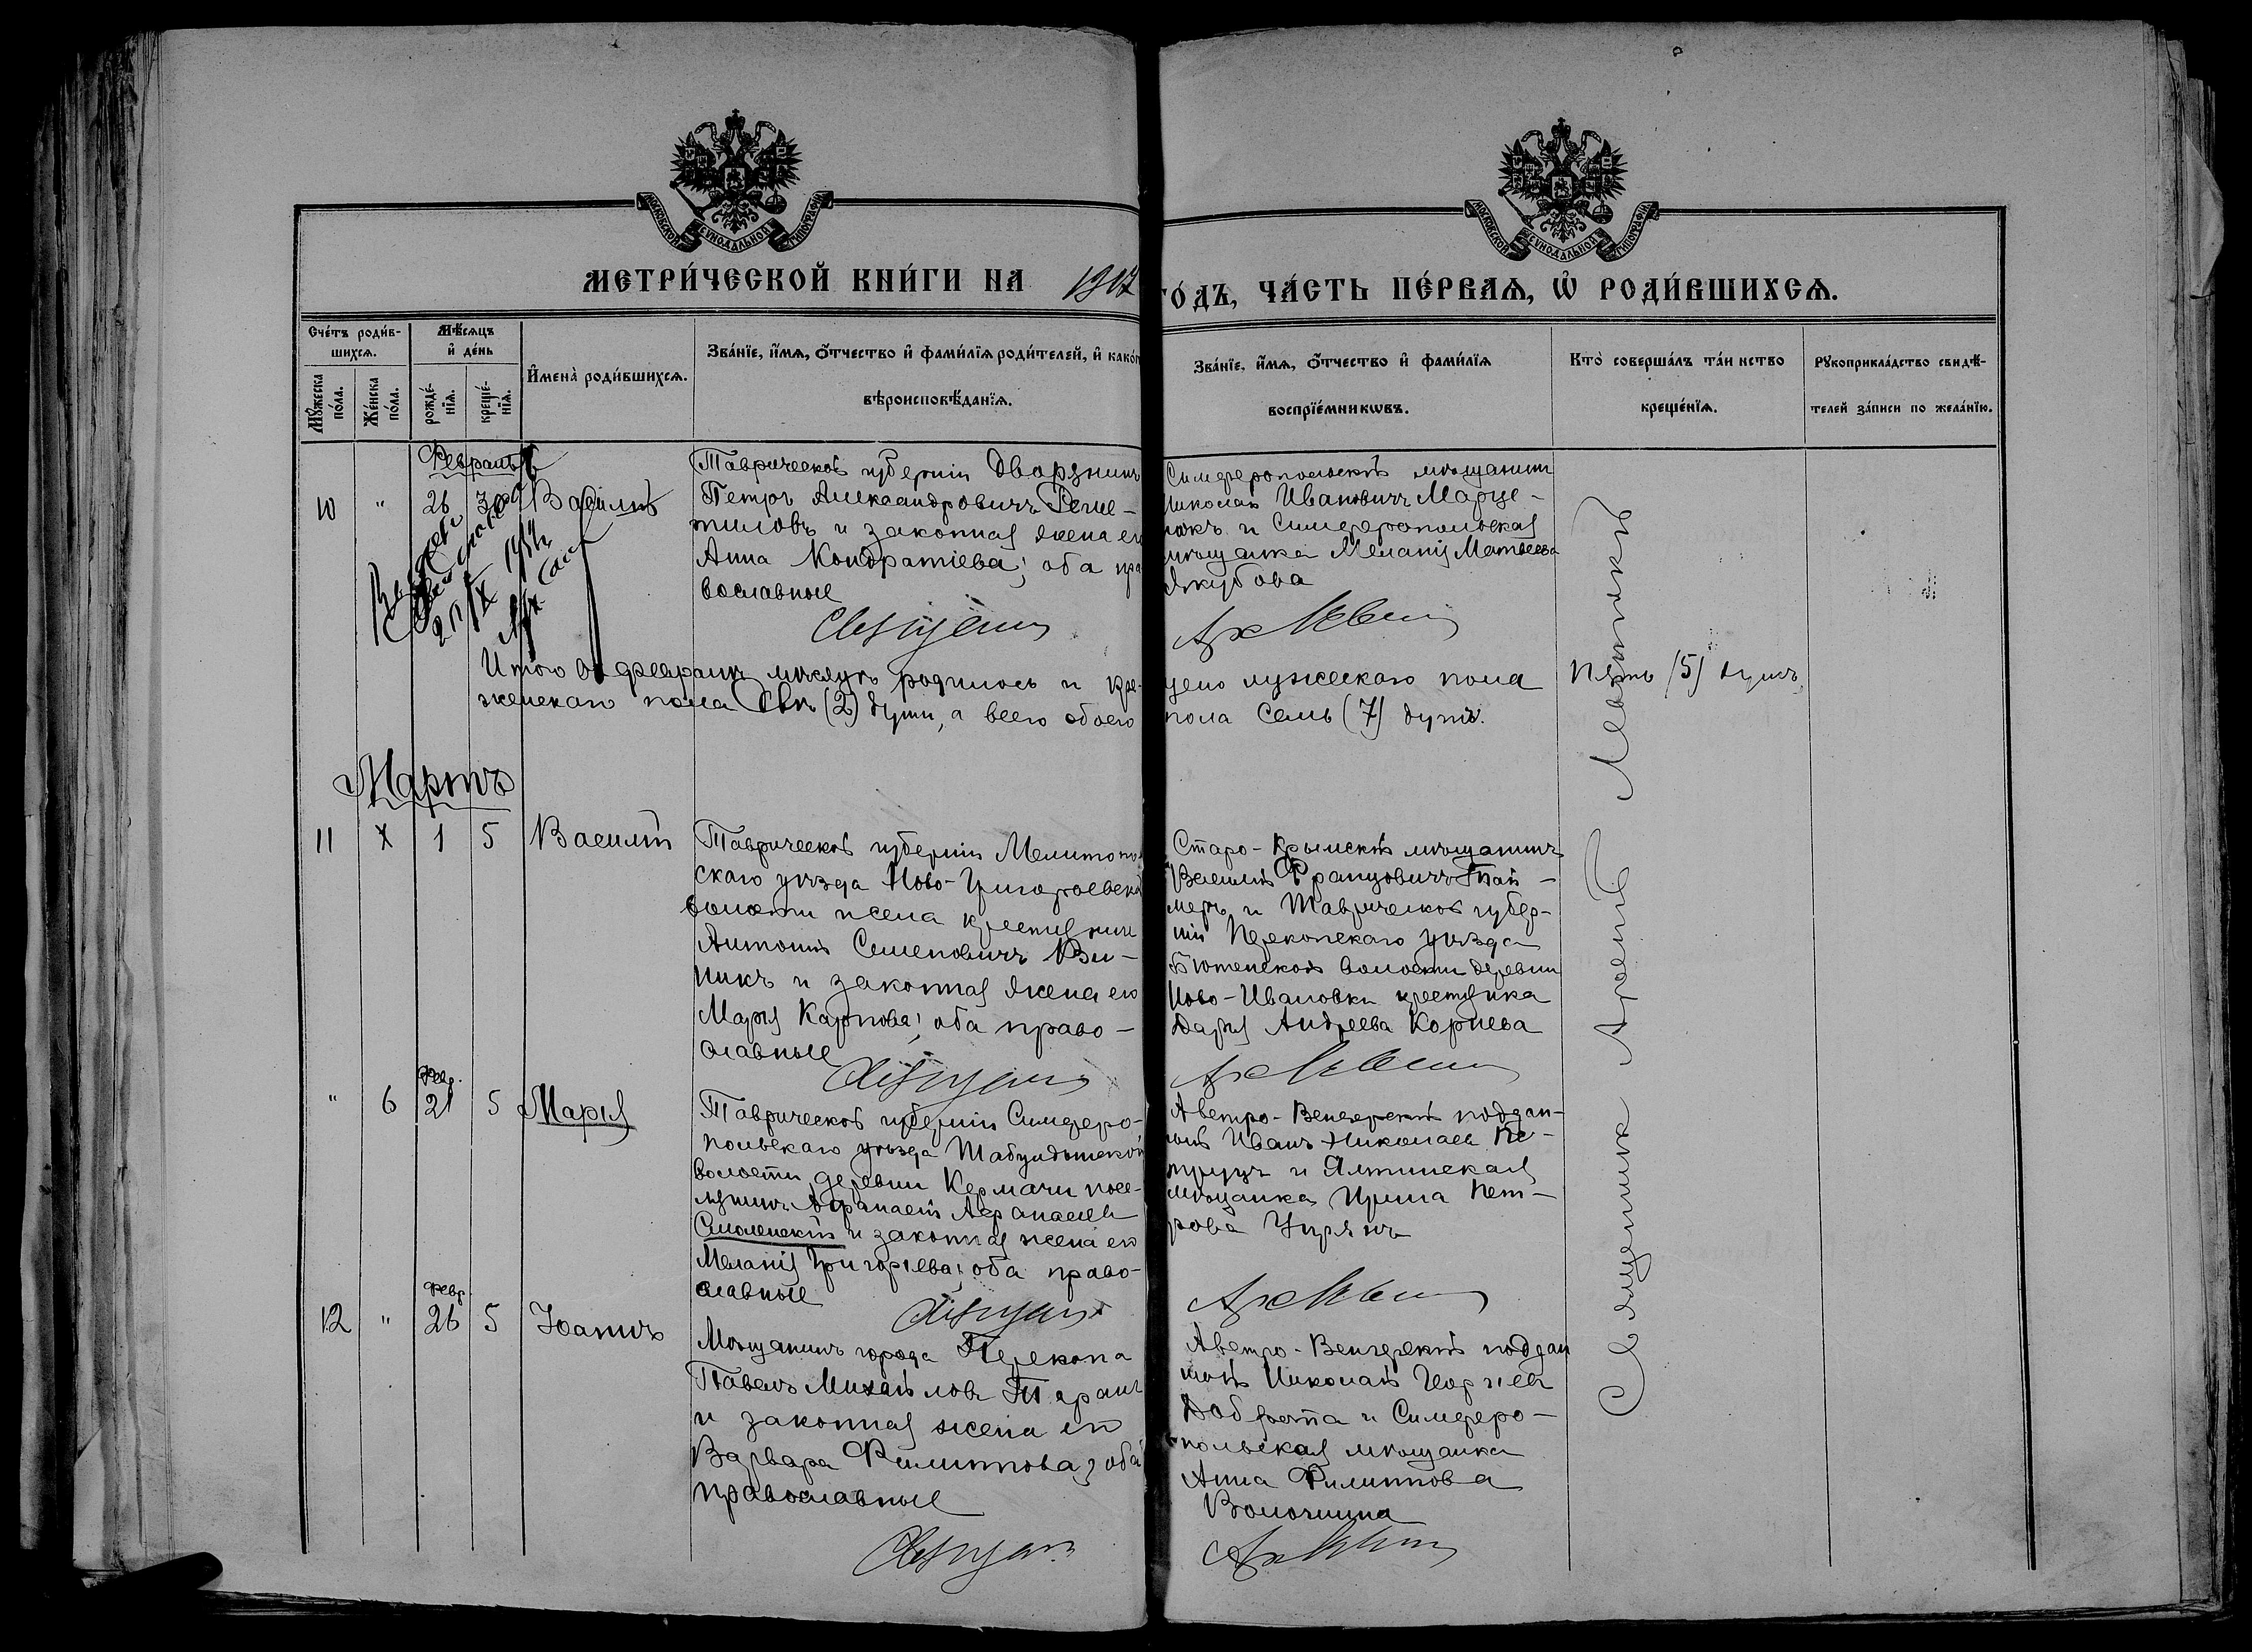 МОСКОВСКОЙ СѴНОДАЛЬНОЙ ТИПОГРАФІИ
МОСКОВСКОЙ СѴНОДАЛЬНОЙ ТИПОГРАФІИ
МЕТРИ́ЧЕСКОЙ КНИ́ГИ НА 1917
ГО́ДЪ, ЧА́СТЬ ПЕ́РВАѦ, Ѡ҆ РОДИ́ВШИХСѦ.
Сче́тъ роди́в-
шихсѧ.
Мꙋ́жеска по́ла.
Же́нска по́ла.
Мѣ́сѧцъ
и҆ де́нь
рожде́-
нїѧ.
креще́-
нїѧ.
И҆мена̀ роди́вшихсѧ.
Зва́нїе, и҆́мѧ, о҆́тчество и҆ фами́лїѧ роди́телей, и҆ како́г
вѣроисповѣ́данїѧ.
Зва́нїе, и҆́мѧ, о҆́тчество и҆ фами́лїѧ
воспрїе́мникѡвъ.
Кто̀ соверша́лъ та́инство
креще́нїѧ.
Рꙋкоприкла́дство свидѣ́-
телей за́писи по жела́нїю.
Февраль
10 " 26 Василій
Таврической губерніи Дворянинъ
Петръ Александровичъ
и законная жена его
Анна Кондратіева; оба пра
вославные
Симферопольскій мѣщанинъ
Николай Ивановичъ Марце-
нюкъ и Симферопольская
мѣщанка Меланія Матвѣева
Якубова
Итого въ февралѣ мѣсяцѣ родилось и кре-
щено мужескаго пола Пять (5) душъ,
женскаго пола двѣ (2) души, а всего обоего
пола семь (7) душъ.
Мартъ
11 X 1 5 Василій
Таврической губерніи Мелитопо
скаго уѣзда Ново-Григорьевско
волости и села крестьянинъ
Антоній Семеновичъ Ви-
никъ и законная жена его
Марія Карпова; оба право-
славные
Старо-Крымскій мѣщанинъ
Василій Францовичъ
и Таврической губер-
ніи Перекопскаго уѣзда
Бютенской волости деревни
Ново-Ивановки крестьянка
Дарія Андреева Корнева
" 6 Февр. 21 5 Марія
Таврической губерніи Симферо-
польскаго уѣзда Табулдынской
волости деревни Кермачи посе-
лянинъ Афанасій Афанасіевъ
Смоленскій и законная жена его
Меланія Григоріева; оба право-
славные
Австро-Венгерскій поддан-
ный Иванъ Николаев Пе-
труцъ и Ялтинская
мѣщанка Ирина Пет-
рова
12 " Февр. 26 5 Іоаннъ
Мѣщанинъ города Перекопа
Павелъ Михайловъ Таранъ
и законная жена его
Варвара Филиппова; оба
православные
Австро-Венгерскій поддан
ный Николай Георгіев
и Симферо-
польская мѣщанка
Анна Филиппова
Волошина
Священник Арсеній Левитскій